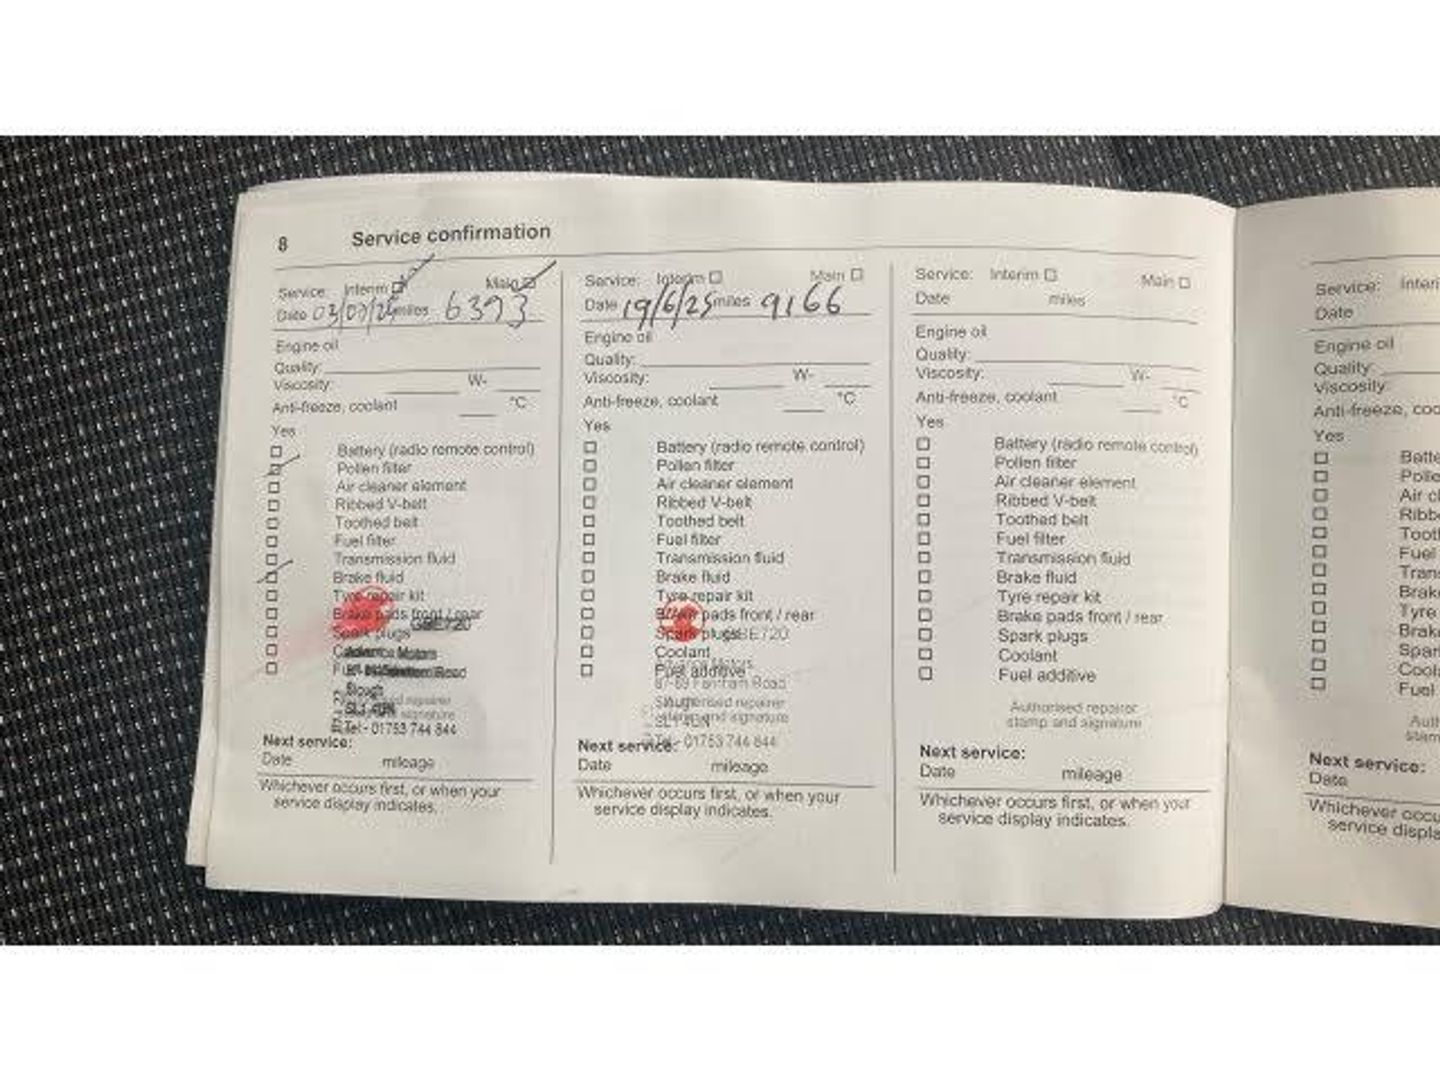 8 Service confirmation
Service: Interim Main
Date 03/07/24 miles 6393
Engine oil
Quality:
Viscosity: W-
Anti-freeze, coolant °C
Yes
Battery (radio remote control)
Pollen filter
Air cleaner element
Ribbed V-belt
Toothed belt
Fuel filter
Transmission fluid
Brake fluid
Tyre repair kit
Brake pads front / rear
GBE720
Spark plugs
Motors
Road
Slough
SL1
Tel - 01753 744 844
Next service:
Date mileage
Whichever occurs first, or when your
service display indicates.
Service: Interim Main
Date 19/6/25 miles 9166
Engine oil
Quality:
Viscosity: W-
Anti-freeze, coolant °C
Yes
Battery (radio remote control)
Pollen filter
Air cleaner element
Ribbed V-belt
Toothed belt
Fuel filter
Transmission fluid
Brake fluid
Tyre repair kit
Brake pads front / rear
Spark plugs GBE720
Coolant
Motors
Fuel additive
87-89 Farnham Road
Authorised repairer
stamp and signature
Tel - 01753 744 844
Next service:
Date mileage
Whichever occurs first, or when your
service display indicates.
Service: Interim Main
Date miles
Engine oil
Quality:
Viscosity: W-
Anti-freeze, coolant °C
Yes
Battery (radio remote control)
Pollen filter
Air cleaner element
Ribbed V-belt
Toothed belt
Fuel filter
Transmission fluid
Brake fluid
Tyre repair kit
Brake pads front / rear
Spark plugs
Coolant
Fuel additive
Authorised repairer
stamp and signature
Next service:
Date mileage
Whichever occurs first, or when your
service display indicates.
Service: Interi
Date
Engine oil
Quality:
Viscosity:
Anti-freeze, coo
Yes
Batte
Polle
Air cl
Ribb
Tooth
Fuel
Trans
Brake
Tyre
Brak
Spar
Cool
Fuel
Auth
stam
Next service:
Date
Whichever occu
service displa